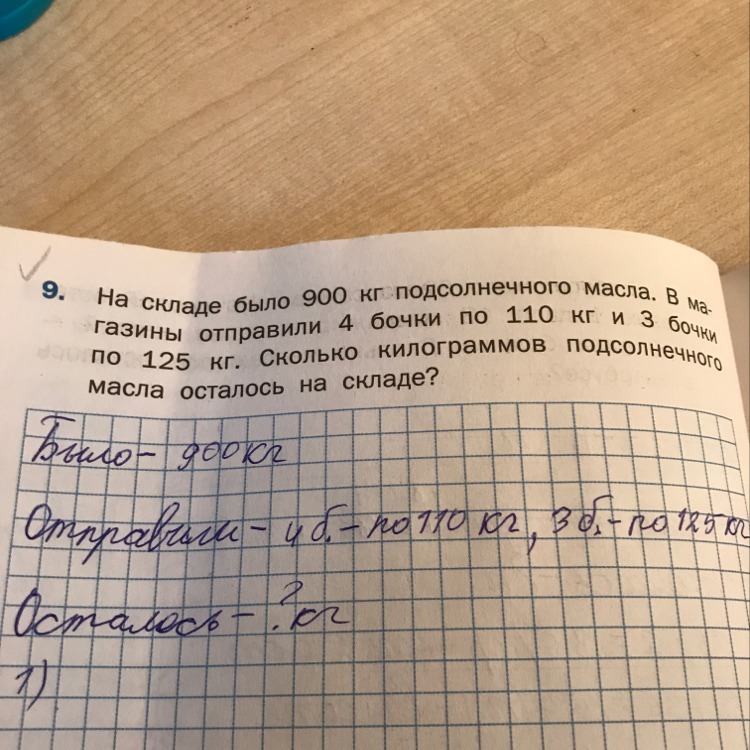 9. На складе было 900 кг подсолнечного масла. В ма-
газины отправили 4 бочки по 110 кг и 3 бочки
по 125 кг. Сколько килограммов подсолнечного
масла осталось на складе?
Было - 900 кг
Отправили - 4 б. - по 110 кг, 3 б. - по 125 кг
Осталось - ? кг
1)